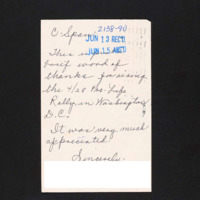 2138-90
C-Span
JUN 13 REC'D
JUN 15 ANS'D
This is
brief word of
thanks for airing
the 4/28 Pro-Life
Rally in Washington
D.C.!
It was very much
appreciated
Sincerely,